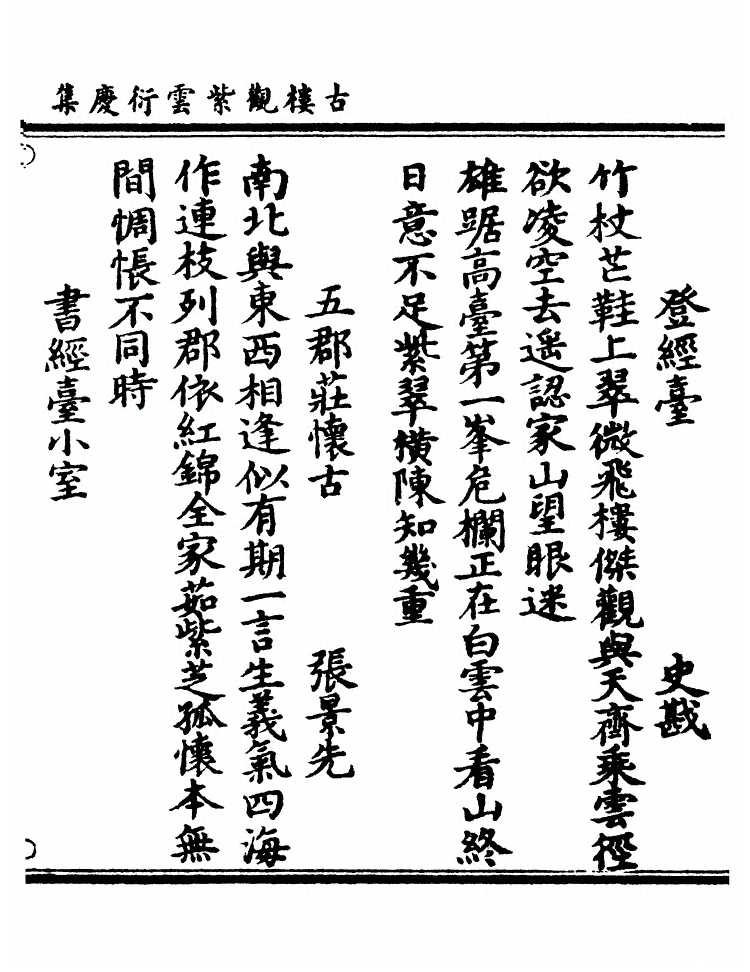 古樓觀紫雲衍慶集
登經臺　史戡
竹杖芒鞋上翠微飛樓傑觀與天齊乘雲徑
欲凌空去遥認家山望眼迷
雄踞高臺第一峯危欄正在白雲中看山終
日意不足紫翠横陳知幾重
五郡莊懷古　張景先
南北與東西相逢似有期一言生義氣四海
作連枝列郡依紅錦全家茹紫芝孤懷本無
間惆悵不同時
書經臺小室